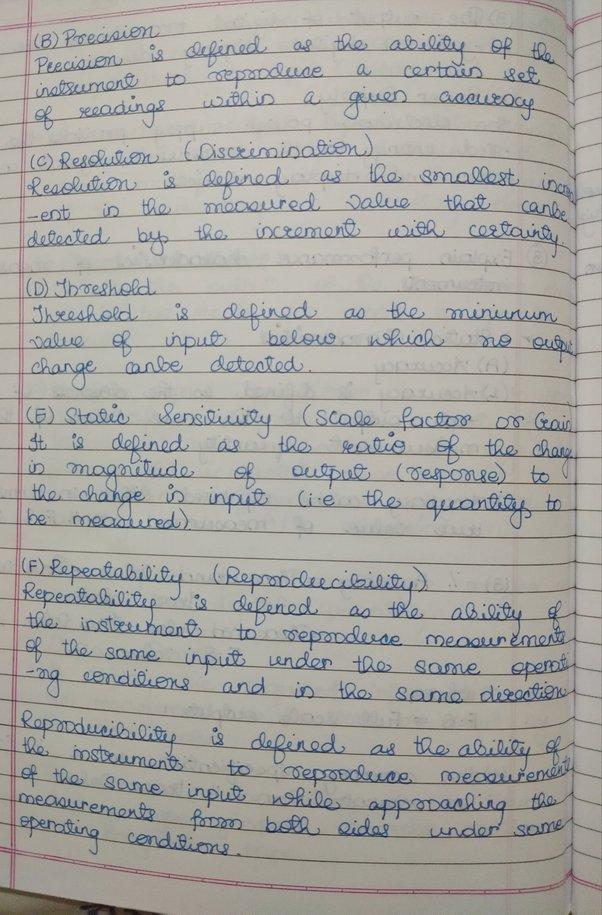 (B) Precision
Precision is defined as the ability of the
instrument to reproduce a certain set
of readings within a given accuracy
(C) Resolution (Discrimination)
Resolution is defined as the smallest increm
-ent in the measured value that canbe
detected by the increment with certainty.
(D) Threshold
Threshold is defined as the minimum
value of input below which no output
change canbe detected.
(E) Static Sensitivity (Scale factor or Gain)
It is defined as the ratio of the change
in magnitude of output (response) to
the change in input (i.e the quantity to
be measured).
(F) Repeatability (Reproducibility)
Repeatability is defined as the ability of
the instrument to reproduce measurements
of the same input under the same operati
-ng conditions and in the same direction
Reproducibility is defined as the ability of
the instrument to reproduce measurements
of the same input while approaching the
measurements from both sides under same
operating conditions.